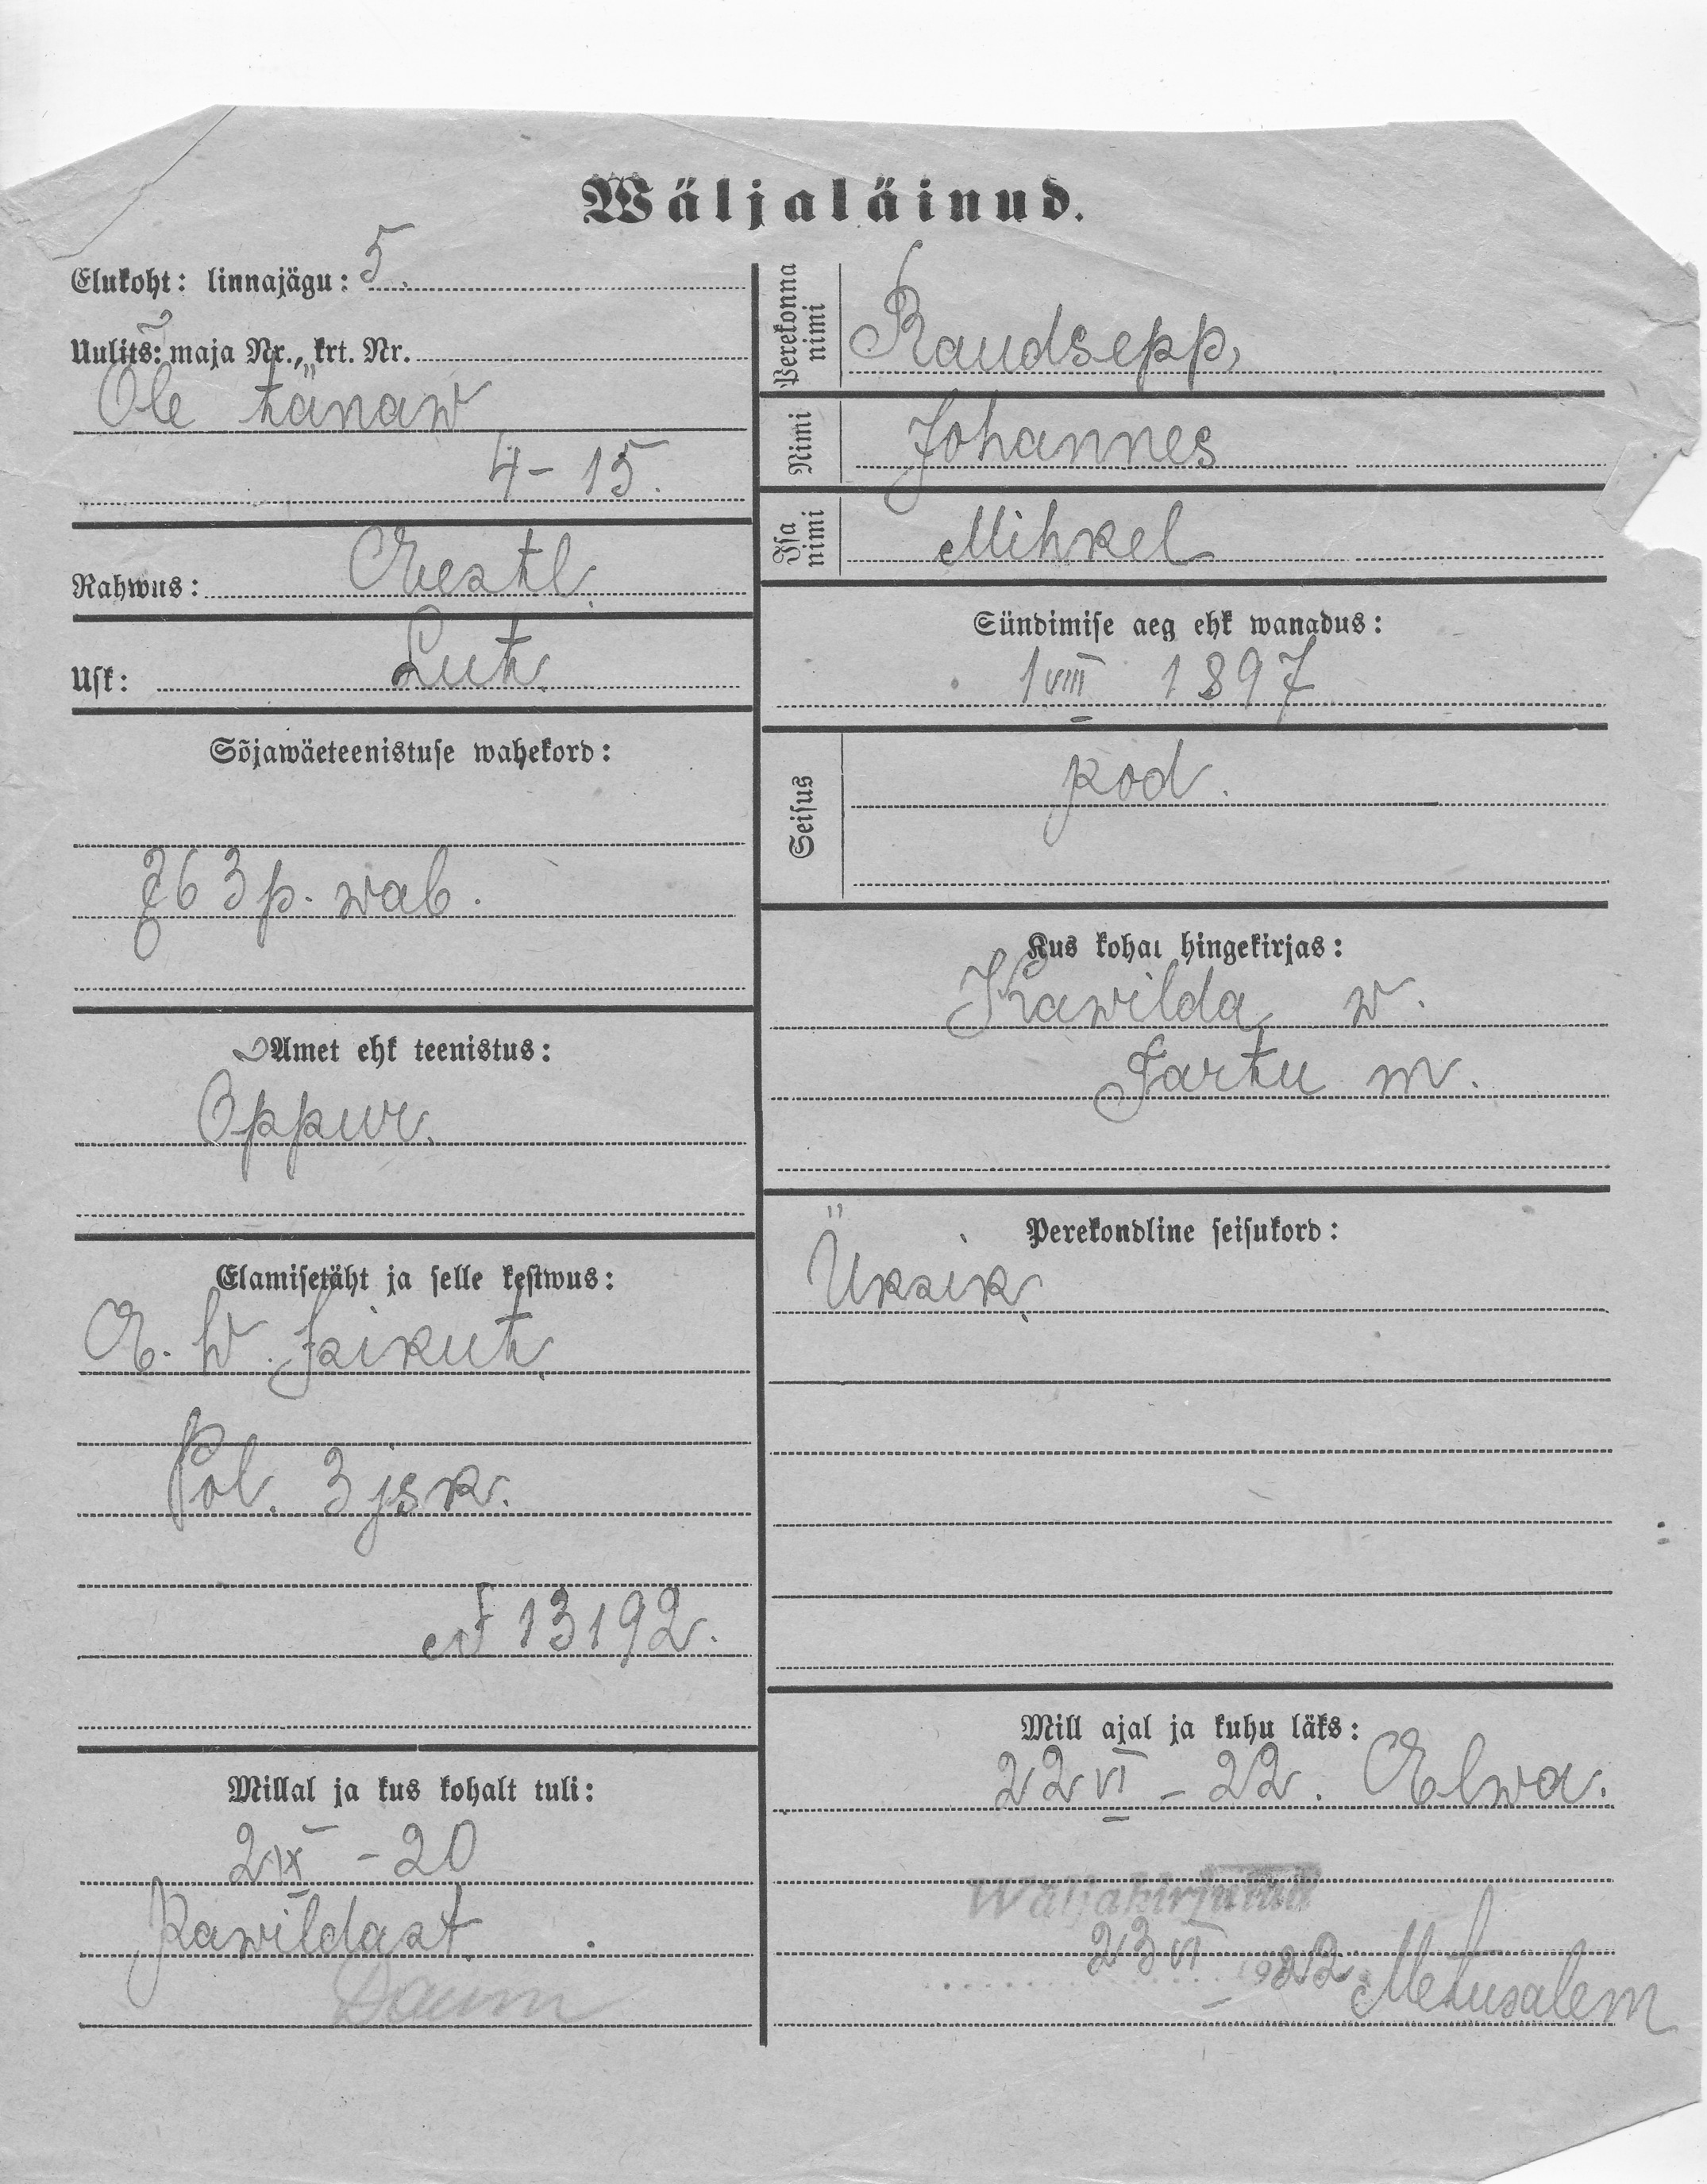 Wäljaläinud.
Elukoht: linnajägu: 5.
Uulits: maja Nr., krt. Nr.
Õle tänaw
4-15.
Rahwus: Eestl.
Usk: Luth.
Sõjawäeteenistuse wahekord:
763 p. wab.
Amet ehk teenistus:
Õppur.
Elamisetäht ja selle kestwus:
E. W. Isikut.
Pol. 3 jsk.
№ 13192.
Millal ja kus kohalt tuli:
2 IX - 20
Kawildast.
Daum
Perekonna nimi Raudsepp,
Nimi Johannes
Isa nimi Mihkel
Sündimise aeg ehk wanadus:
1 VIII 1897
Seisus kod.
Kus kohal hingekirjas:
Kawilda w.
Tartu m.
Perekondline seisukord:
Üksik.
Mill ajal ja kuhu läks:
22 VI - 22. Elwa.
Wäljakirjutud
23 VI 1922 Metusalem